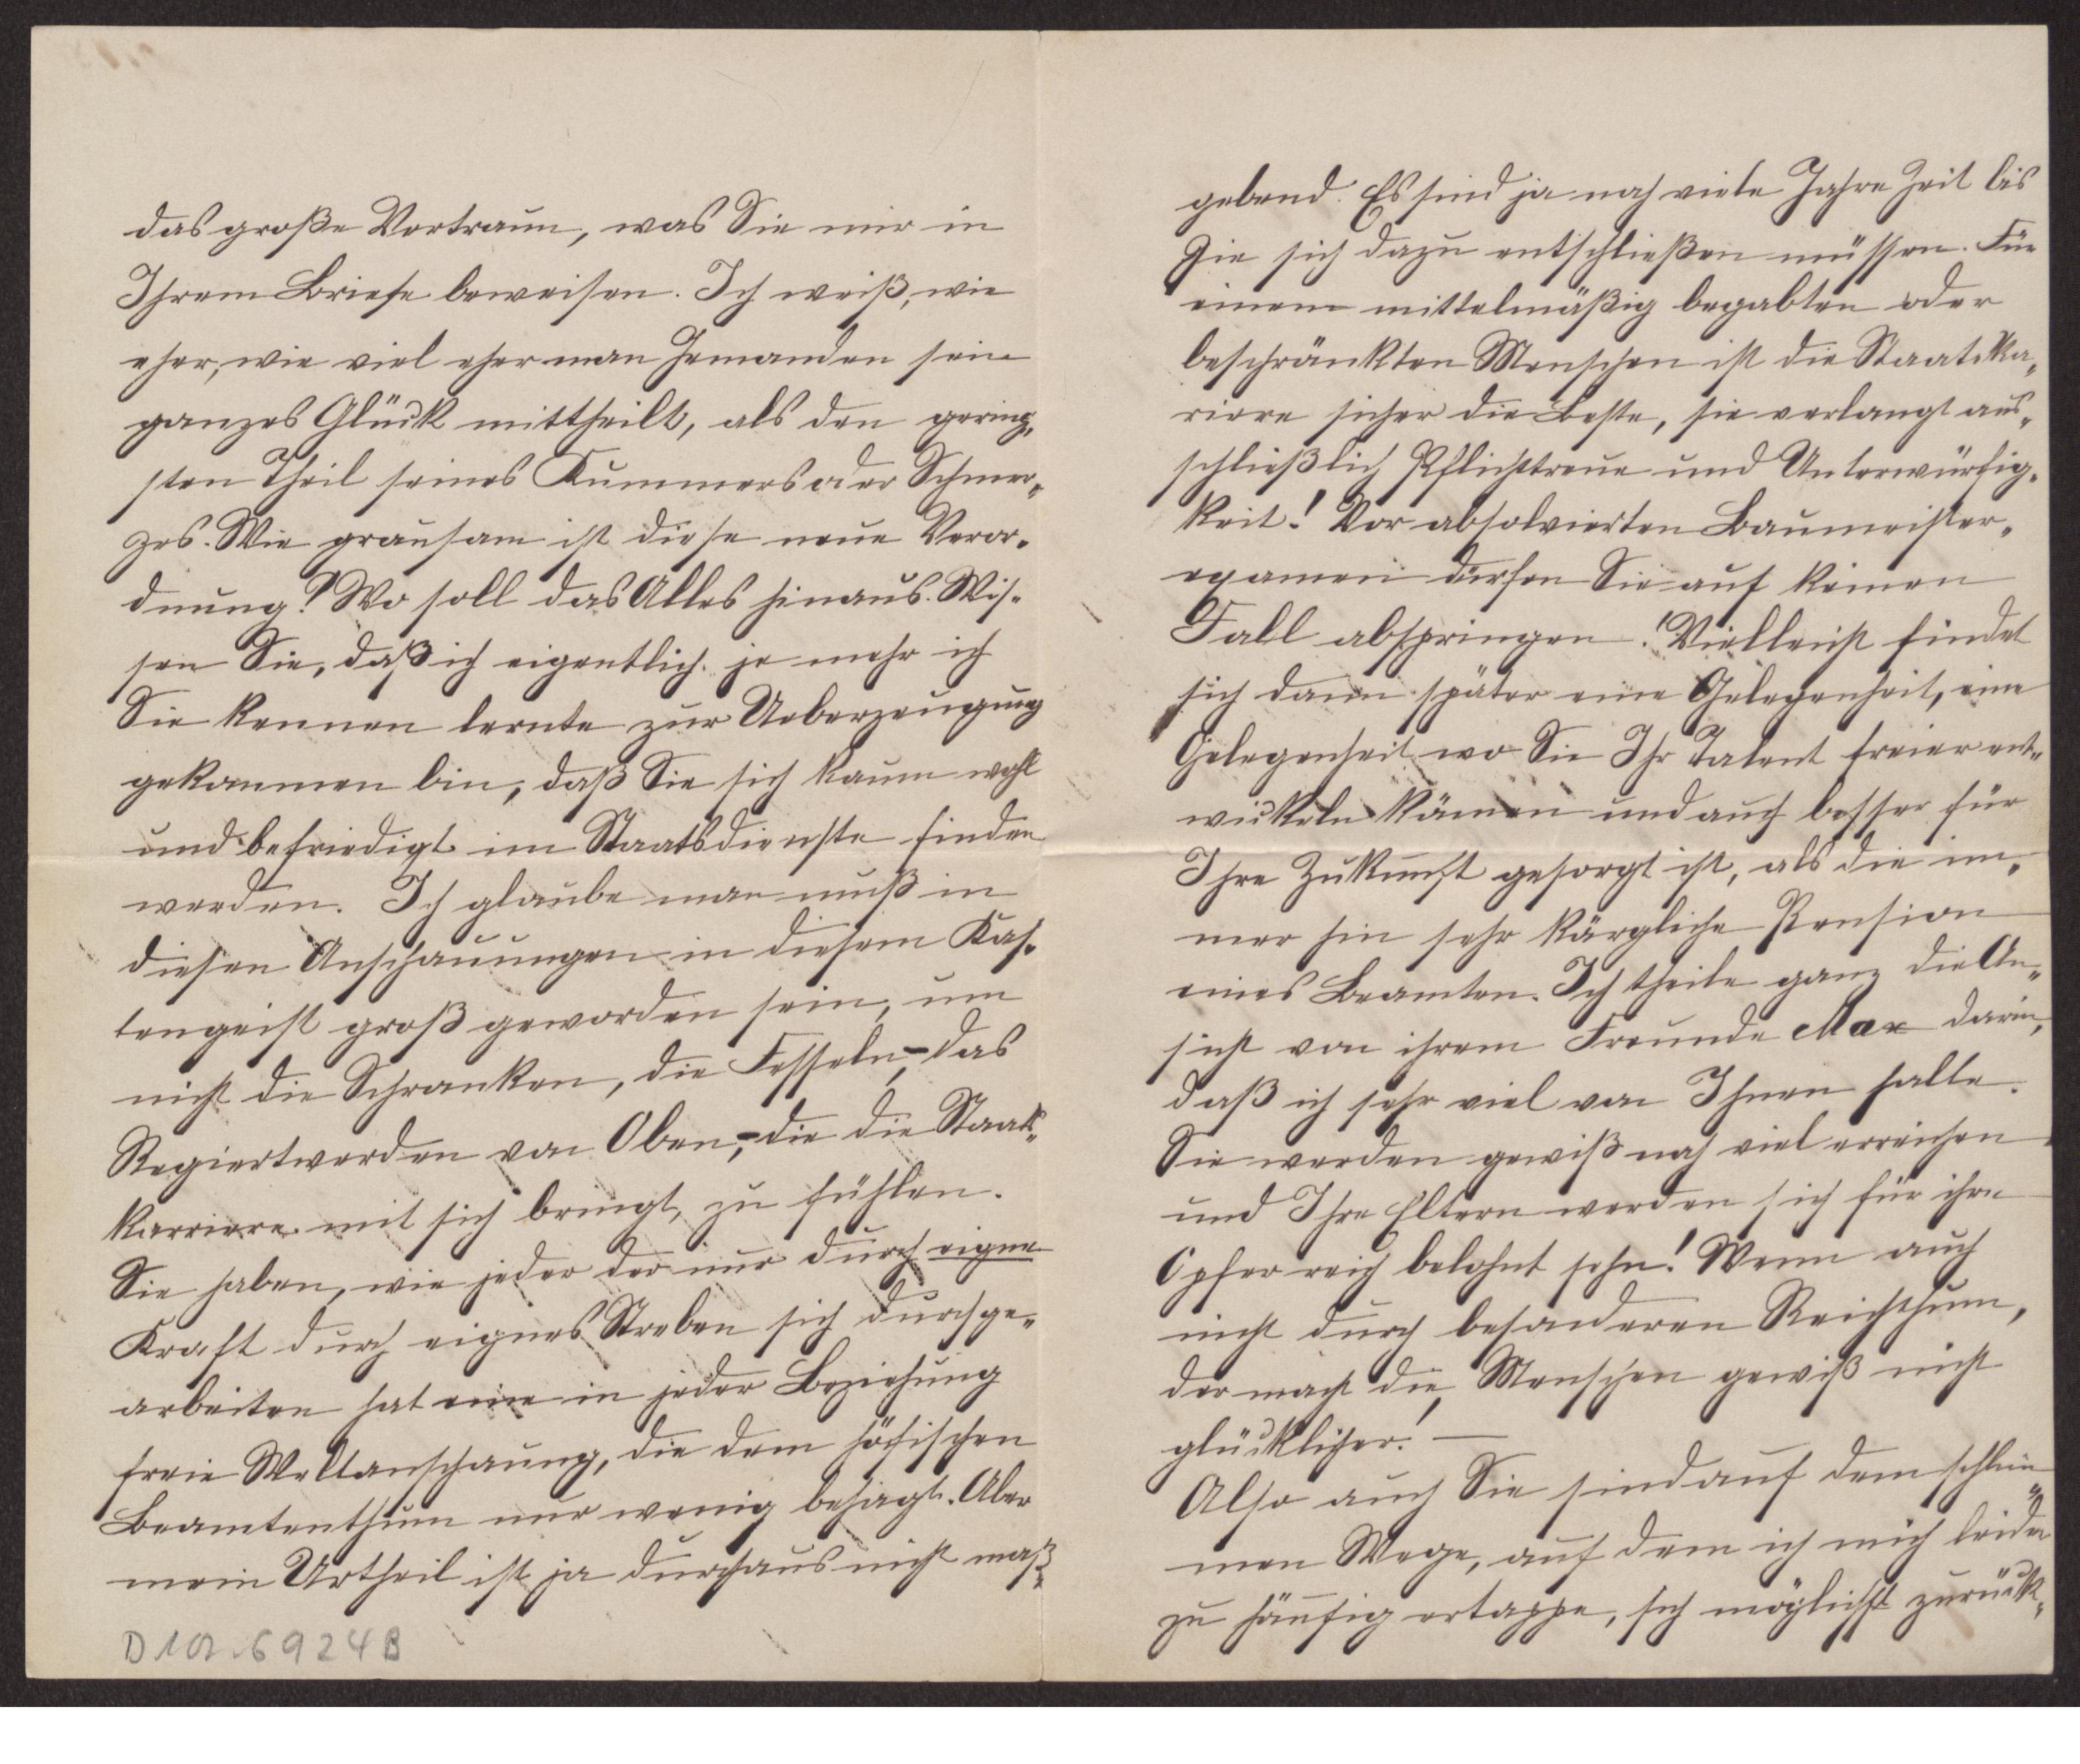 das große Vertraun, was Sie mir in
Ihrem Briefe beweisen. Ich weiß, wie
eher, wie viel eher man Jemanden sein
ganzes Glück mittheilt, als den gering„
sten Theil seines Kummers oder Schmer„
zes. Wie grausam ist diese neue Veror„
dnung? Wo soll das Alles hinaus. Wis„
sen Sie, daß ich eigentlich je mehr ich
Sie kennen lernte zur Ueberzeugung
gekommen bin, daß Sie sich kaum wohl
und befriedigt im Staatsdienste finden
werden. Ich glaube man muß in
diesen Anschauungen in diesem Kas„
tengeist groß geworden sein, um
nicht die Schranken, die Fesseln, – das
Regiertwerden von Oben, – die die Staats„
karriere mit sich bringt, zu fühlen.
Sie haben, wie jeder der nur durch eigne
Kraft durch eignes Streben sich durchge„
arbeiten hat eine in jeder Beziehung
freie Weltanschaung, die dem höfischen
Beamtenthum nur wenig behagt. Aber
mein Urtheil ist ja durchaus nicht maß„
D 102.6924 B
gebend. Es sind ja noch viele Jahre Zeit bis
Sie sich dazu entschließen müssen. Für
einem mittelmäßig begabten oder
beschränkten Menschen ist die Staatska„
riere sicher die Beste, sie verlangt aus„
schließlich Pflichttreue und Unterwürfig„
keit! Vor absolvierten Baumeister„
examen dürfen Sie auf keinen
Fall abspringen! Vielleicht findet
sich dann später eine Gelegenheit, eine
Gelegenheit wo Sie Ihr Talent freier ent„
wickeln können und auch besser für
Ihre Zukunft gesorgt ist, als die im„
mer hin sehr kärgliche Pension
eines Beamten. Ich theile ganz die An„
sicht von ihrem Freunde Max darin,
daß ich sehr viel von Ihnen halte.
Sie werden gewiß noch viel erreichen
und Ihre Eltern werden sich für ihre
Opfer reich belohnt sehn! Wenn auch
nicht durch besonderen Reichthum,
der macht die Menschen gewiß nicht
glücklicher! —
Also auch Sie sind auf dem schlim„
men Wege, auf dem ich mich leider
zu häufig ertappe, sich möglichst zurück„